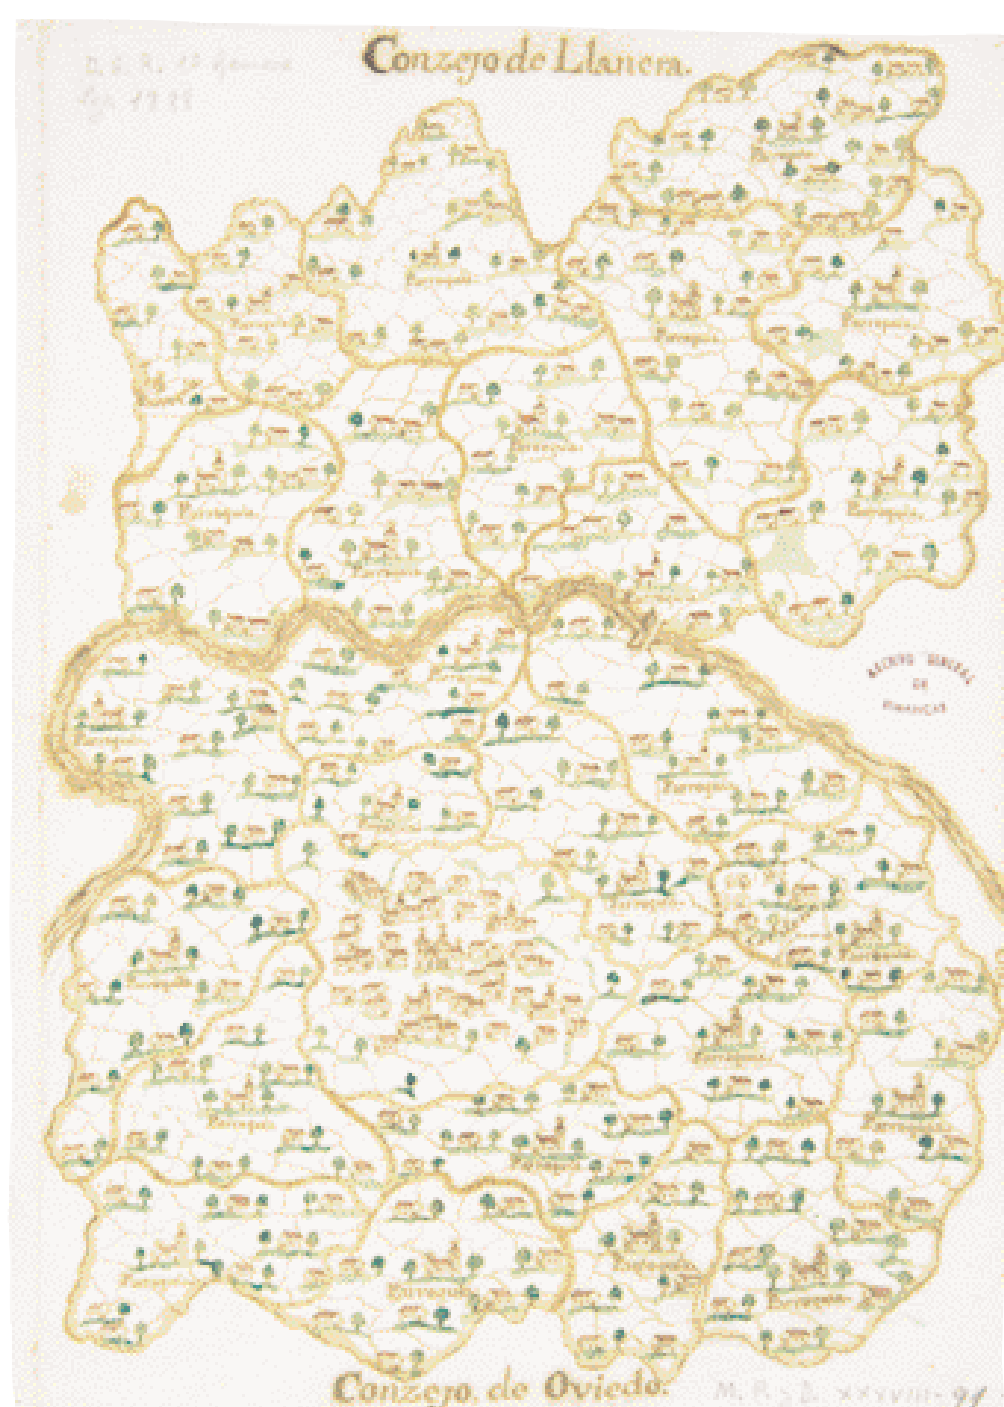 D. G. R. 1ª
Leg. 1975
Conzejo de Llanera.
Parroquia.
Parroquia.
Parroquia.
Parroquia.
Parroquia.
Parroquia.
Parroquia.
Parroquia.
Parroquia.
ARCHIVO GENERAL
DE
SIMANCAS
Parroquia.
Parroquia.
Parroquia.
Parroquia.
Parroquia.
Parroquia.
Parroquia.
Parroquia.
Parroquia.
Parroquia.
Parroquia.
Parroquia.
Parroquia.
Parroquia.
Conzejo. de Oviedo.
M. P. y D. XXXVIII-91